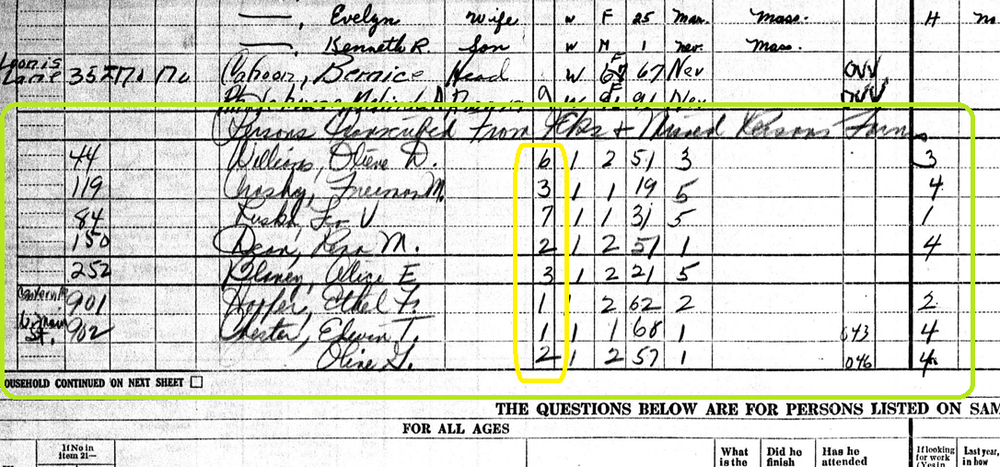 —, Evelyn Wife W F 25 Mar. Mass. H no.
—, Kenneth R. Son W M 1 nev. Mass.
Loomis Lane 352 Cahoon, Bernice Head W F 67 Nev
9 W 91 Nev
Persons Transcribed From + Missed Persons Form
44 Williams, Olieve D. 6 1 2 51 3 3
119 Crosby, Freeman M. 3 1 1 19 5 4
84 V 7 1 1 31 5 1
150 Dean, M. 2 1 2 51 1 4
252 Blaney, Alice E 3 1 2 21 5
901 Hopper, Ethel F. 1 1 2 62 2 2
W. Main St. 902 Chester, Edwin T. 1 1 1 68 1 043 4
Olive G. 2 1 2 57 1 046 4
OUSEHOLD CONTINUED ON NEXT SHEET
THE QUESTIONS BELOW ARE FOR PERSONS LISTED ON SAM
FOR ALL AGES
If No in item 21— What is the Did he finish Has he attended If looking for work (Yes in Last year, in how